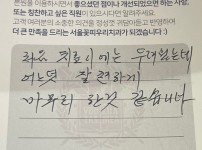 본원을 이용하시면서 좋으셨던 점이나 개선되었으면 하는 사항,
또는 칭찬하고 싶은 직원이 있으시다면 말씀해주세요.
고객 여러분의 소중한 의견을 정성껏 귀담아듣고 반영하여
더 큰 만족을 드리는 서울꽃피우리치과가 되겠습니다 :)
처음 치료시에는 두려웠는데
어느덧 잘 련하게
마무리 한것 같습니다